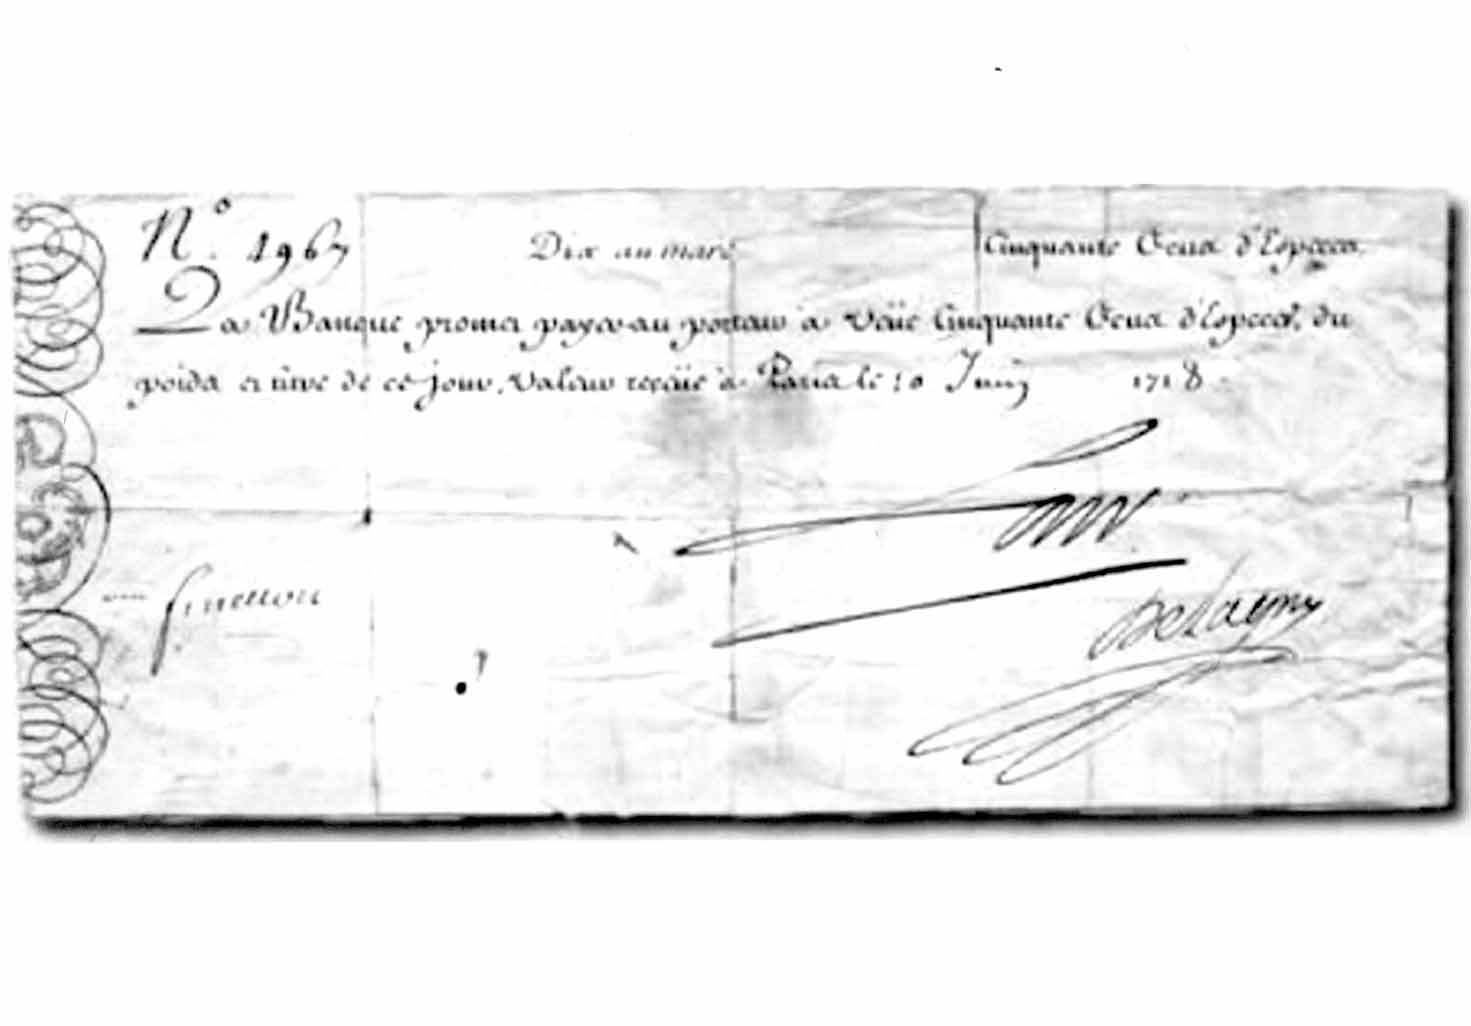 N.º 4967 Dix au marc Cinquante Ecus d'Especes.
La Banque promet payer au porteur à Veüe Cinquante Ecus d'Especes, du
poids et titre de ce jour, valeur reçeüe à Paris le 10 Juin 1718
Delagny